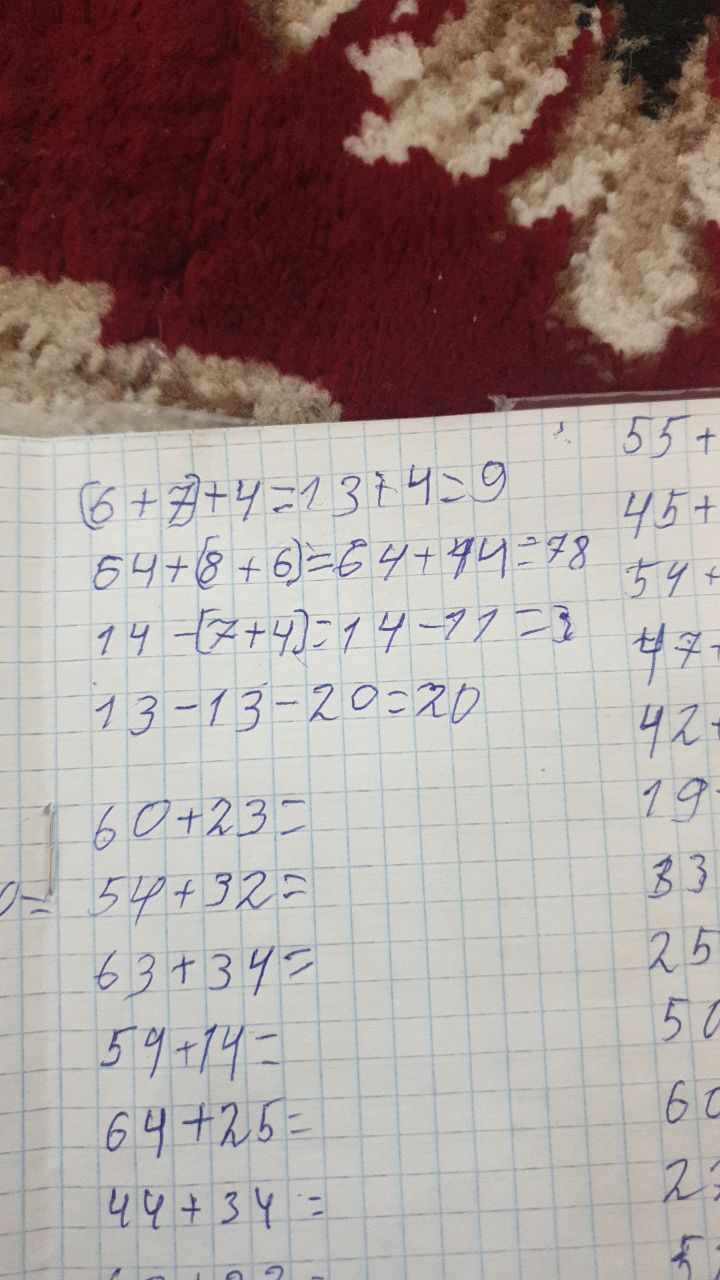 (6+7)+4=13+4=9
64+(8+6)=64+14=78
14-(7+4)=14-11=3
13-13-20=20
60+23=
54+32=
63+34=
54+14=
64+25=
44+34=
0=
55+
45+
54+
47+
42+
19
33
25
50
60